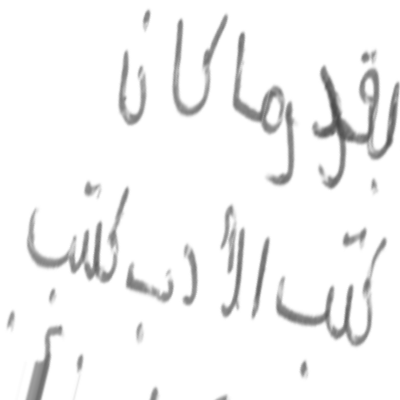 بقدر ما كان
كتب الأدب كتب